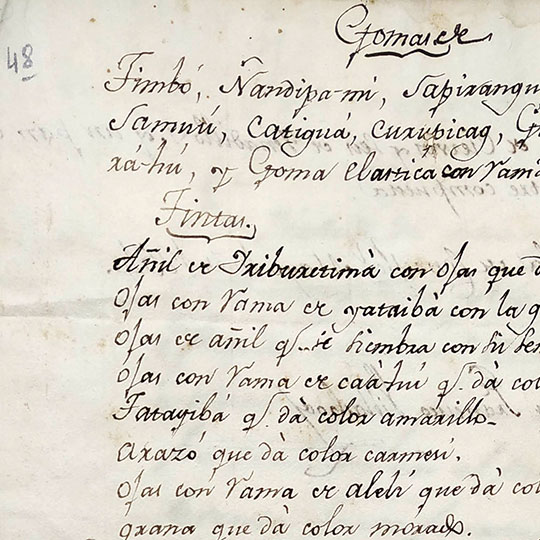 48
Gomas er
Timbó, Ñandipa-mi, Sapirangu
Samuú, Catiguá, Curupicaÿ, G
rá-hú, y Goma elastica con rama
Tintas.
Añil er Triburetimà con ojas que d
Ojas con rama er yataibà con la q
Ojas er añil q.e se siembra con su sem
Ojas con rama er caàhú q.e dà col
Tatayibá q.e dà color amarillo-
Arazó que dà color carmesi.
Ojas con rama er alelí que dà col
grana que dà color morado.